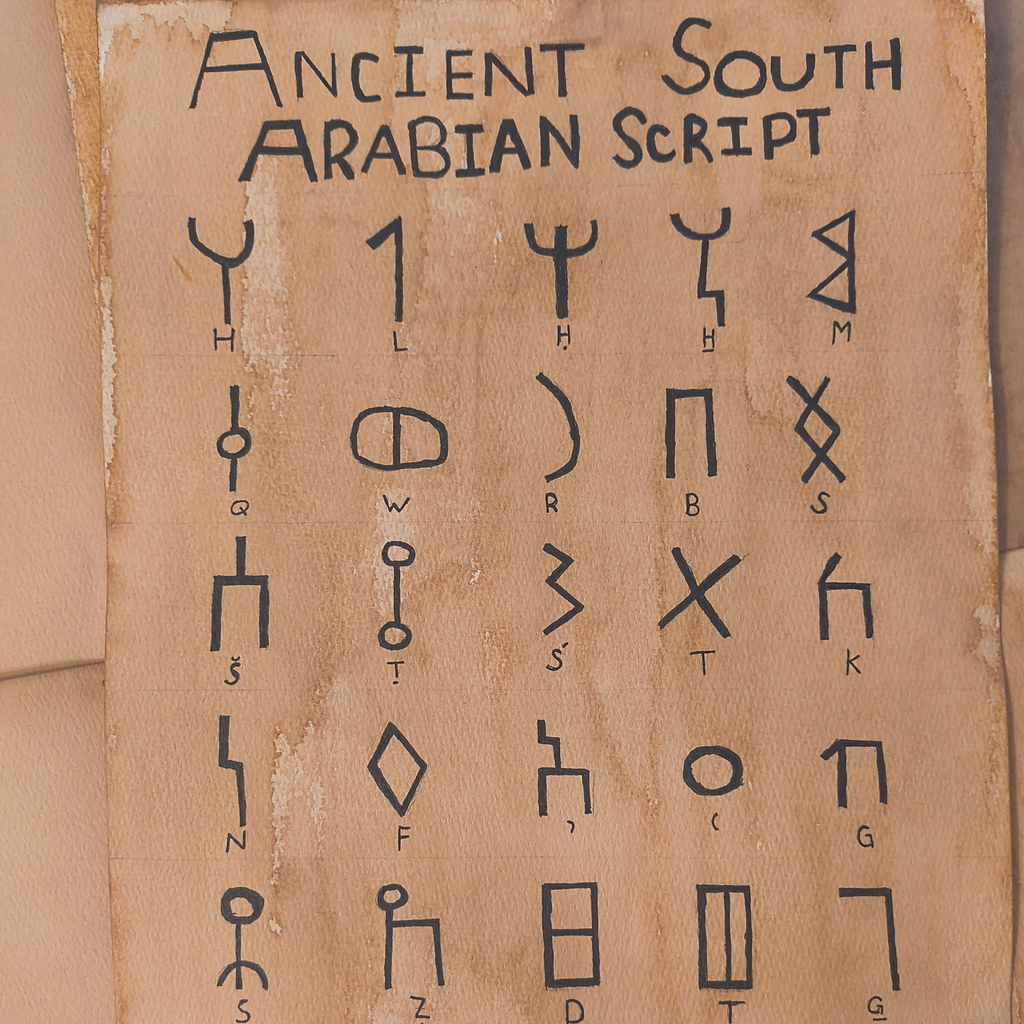 ANCIENT SOUTH
ARABIAN SCRIPT
𐩠 𐩡 𐩢 𐩭 𐩣
H L Ḥ H̱ M
𐩤 𐩥 𐩧 𐩨 𐩯
Q W R B S
𐩪 𐩻 𐩦 𐩩 𐩫
Š Ṭ Ś T K
𐩬 𐩰 𐩱 𐩲 𐩴
N F ʾ ʿ G
𐩮 𐩼 𐩳 𐩷 𐩶
S Ẓ D T G̱